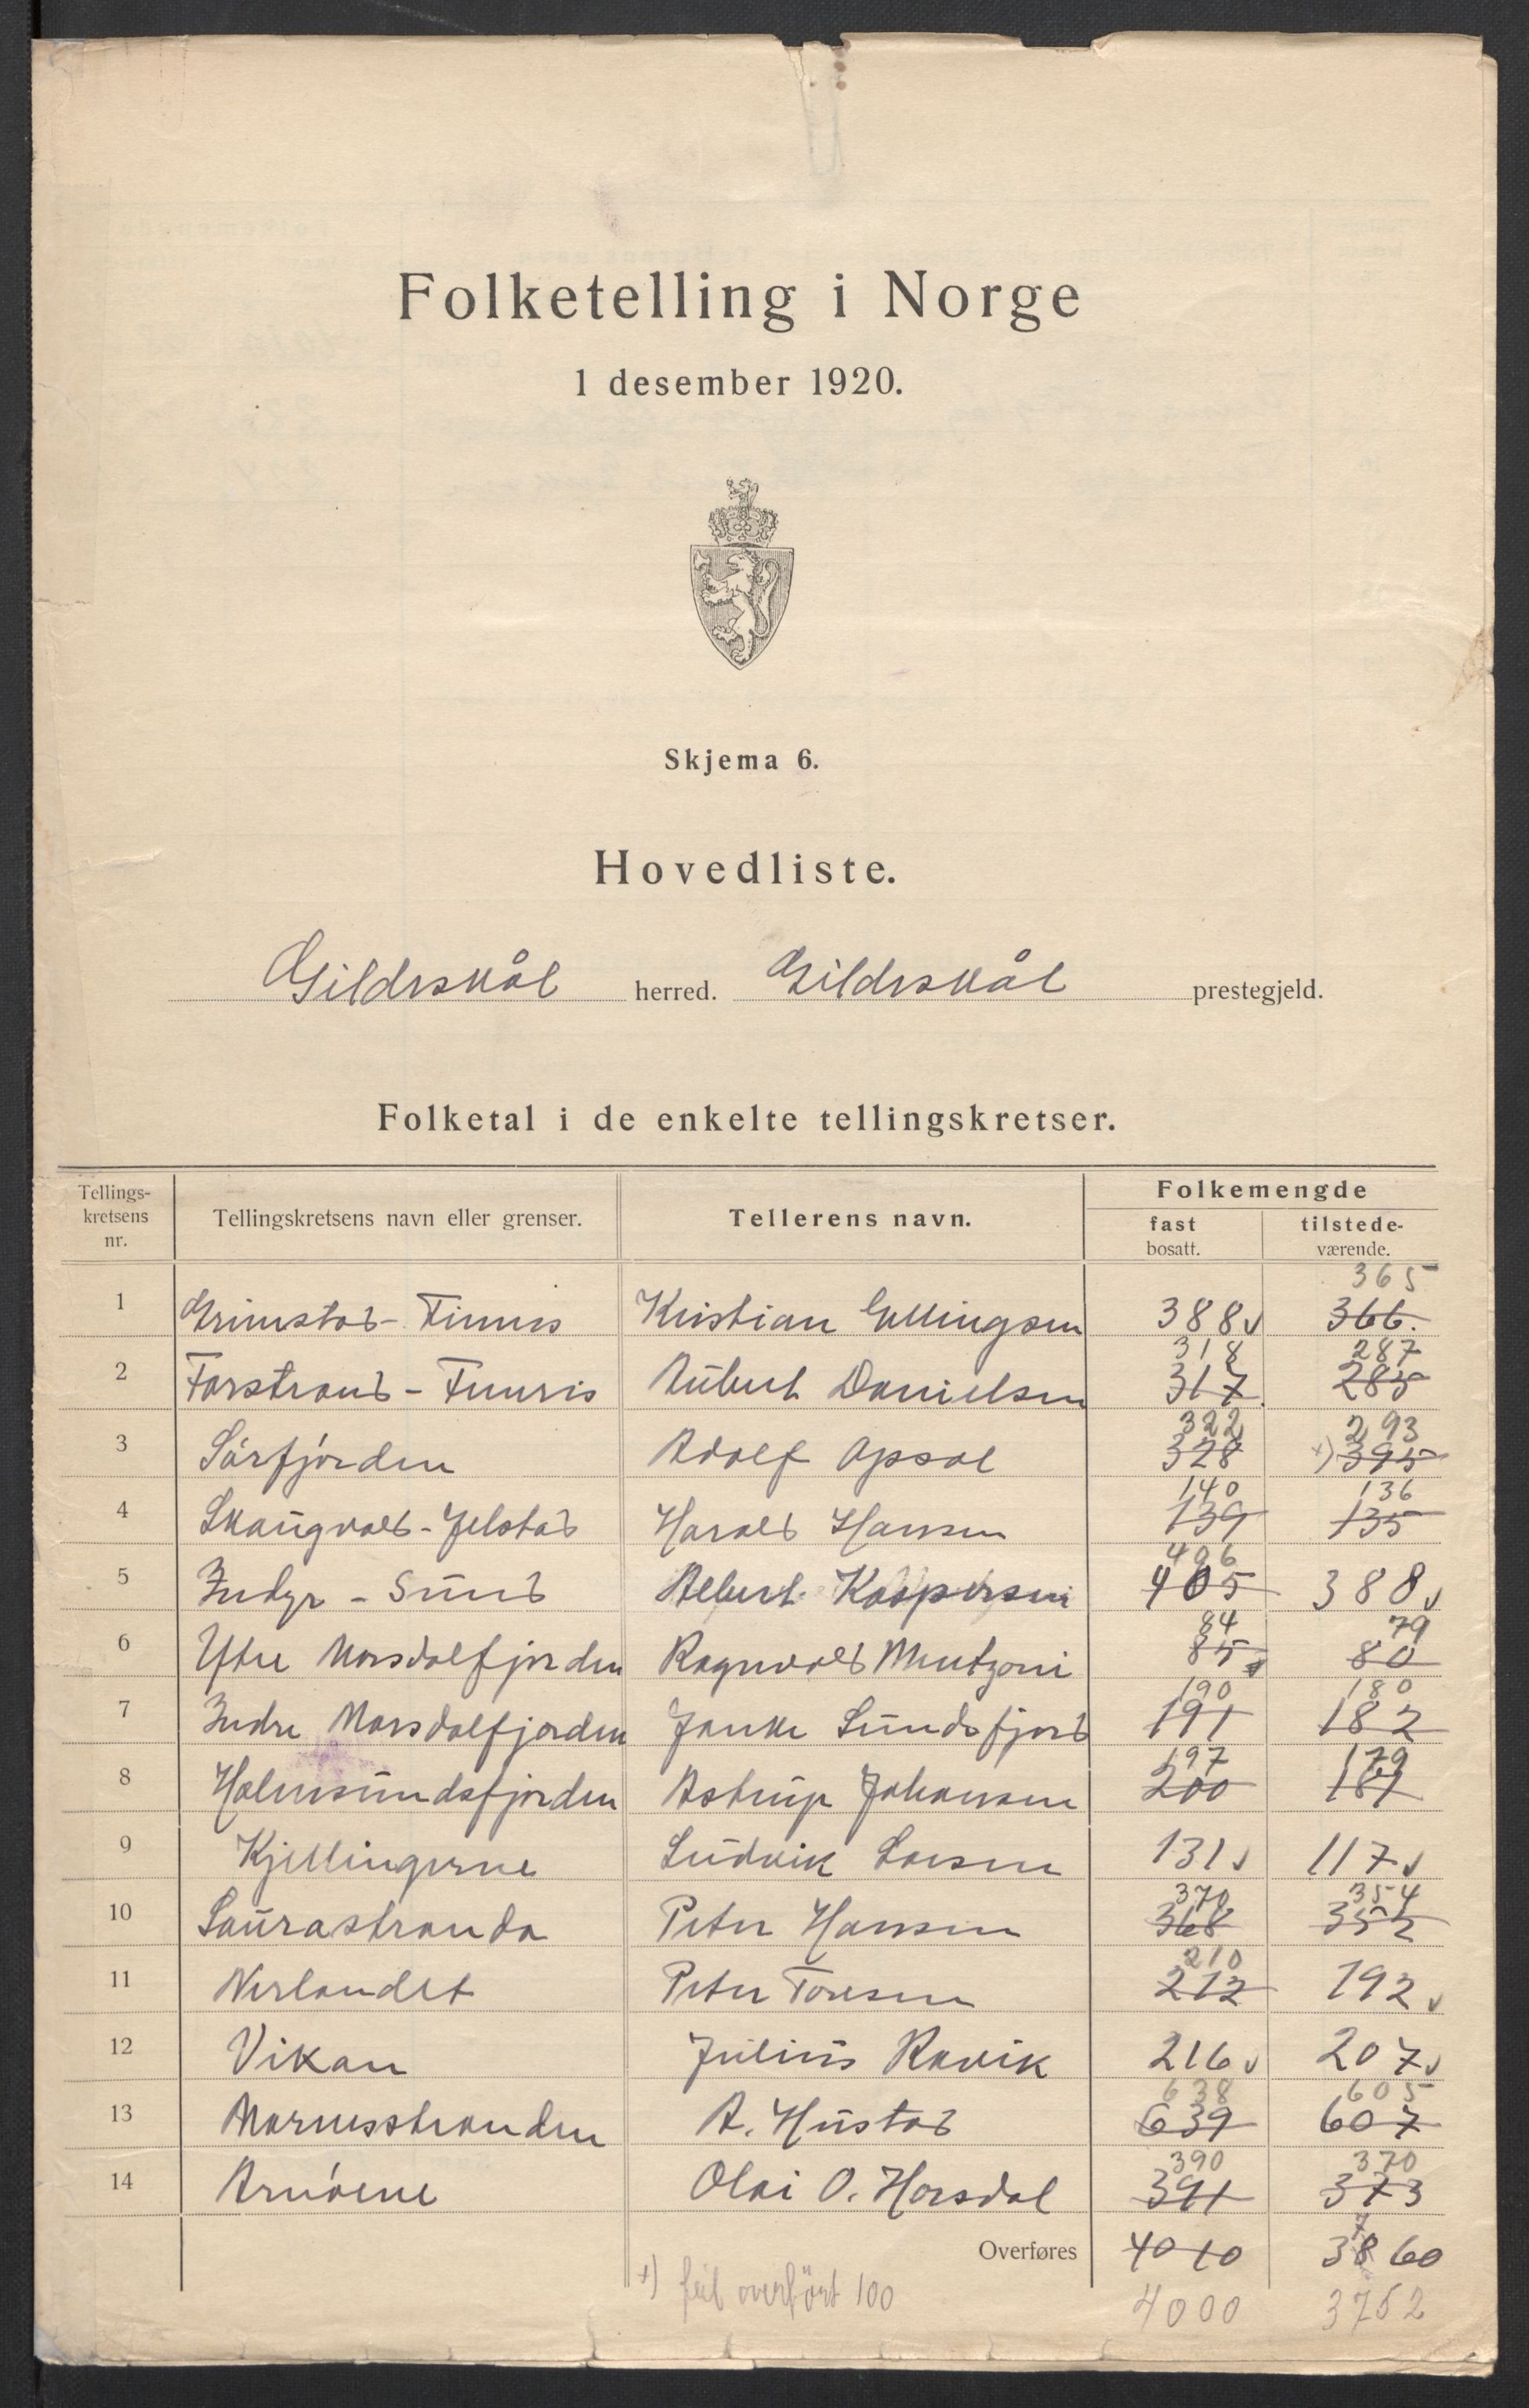 Folketelling i Norge
1 desember 1920.
Skjema 6.
Hovedliste.
Gildeskål herred. Gildeskål prestegjeld.
Folketal i de enkelte tellingskretser.
Tellings-kretsens nr. Tellingskretsens navn eller grenser. Tellerens navn. Folkemengde
fast bosatt. tilstede-værende.
365
1 Grimstad - Finnes Kristian Ellingsen 388 v 366.
318 287
2 Forstrand - Kristian Danielsen 317. 285
322 293
3 Sörfjorden Adolf Opsal 328 +) 395
140 136
4 Skaugvold - Jelstad Harald Hansen 139 135
406
5 Indyr - Sund Albert Kaspersen 405 388 v
84 79
6 Ytre Morsdalfjorden Ragnvald Mentzoni 85 80
190 180
7 Indre Morsdalfjorden Janke Sundsfjord 191 182
197 179
8 Holmsundsfjorden Astrup Johansen 200 181
9 Kjellingerne Ludvik Larsen 131 v 117 v
370 354
10 Saurastranda Peter Hansen 368 352
210
11 Nerlandet Peter Toresen 212 192 v
12 Vikan Julius Ravik 216 v 207 v
638 605
13 Mornesstranden A. Hustad 639 607
390 370
14 Arnöene Olai O. Horsdal 391 373
7
Overføres 4010 3860
+) feil overfört 100 4000 3752